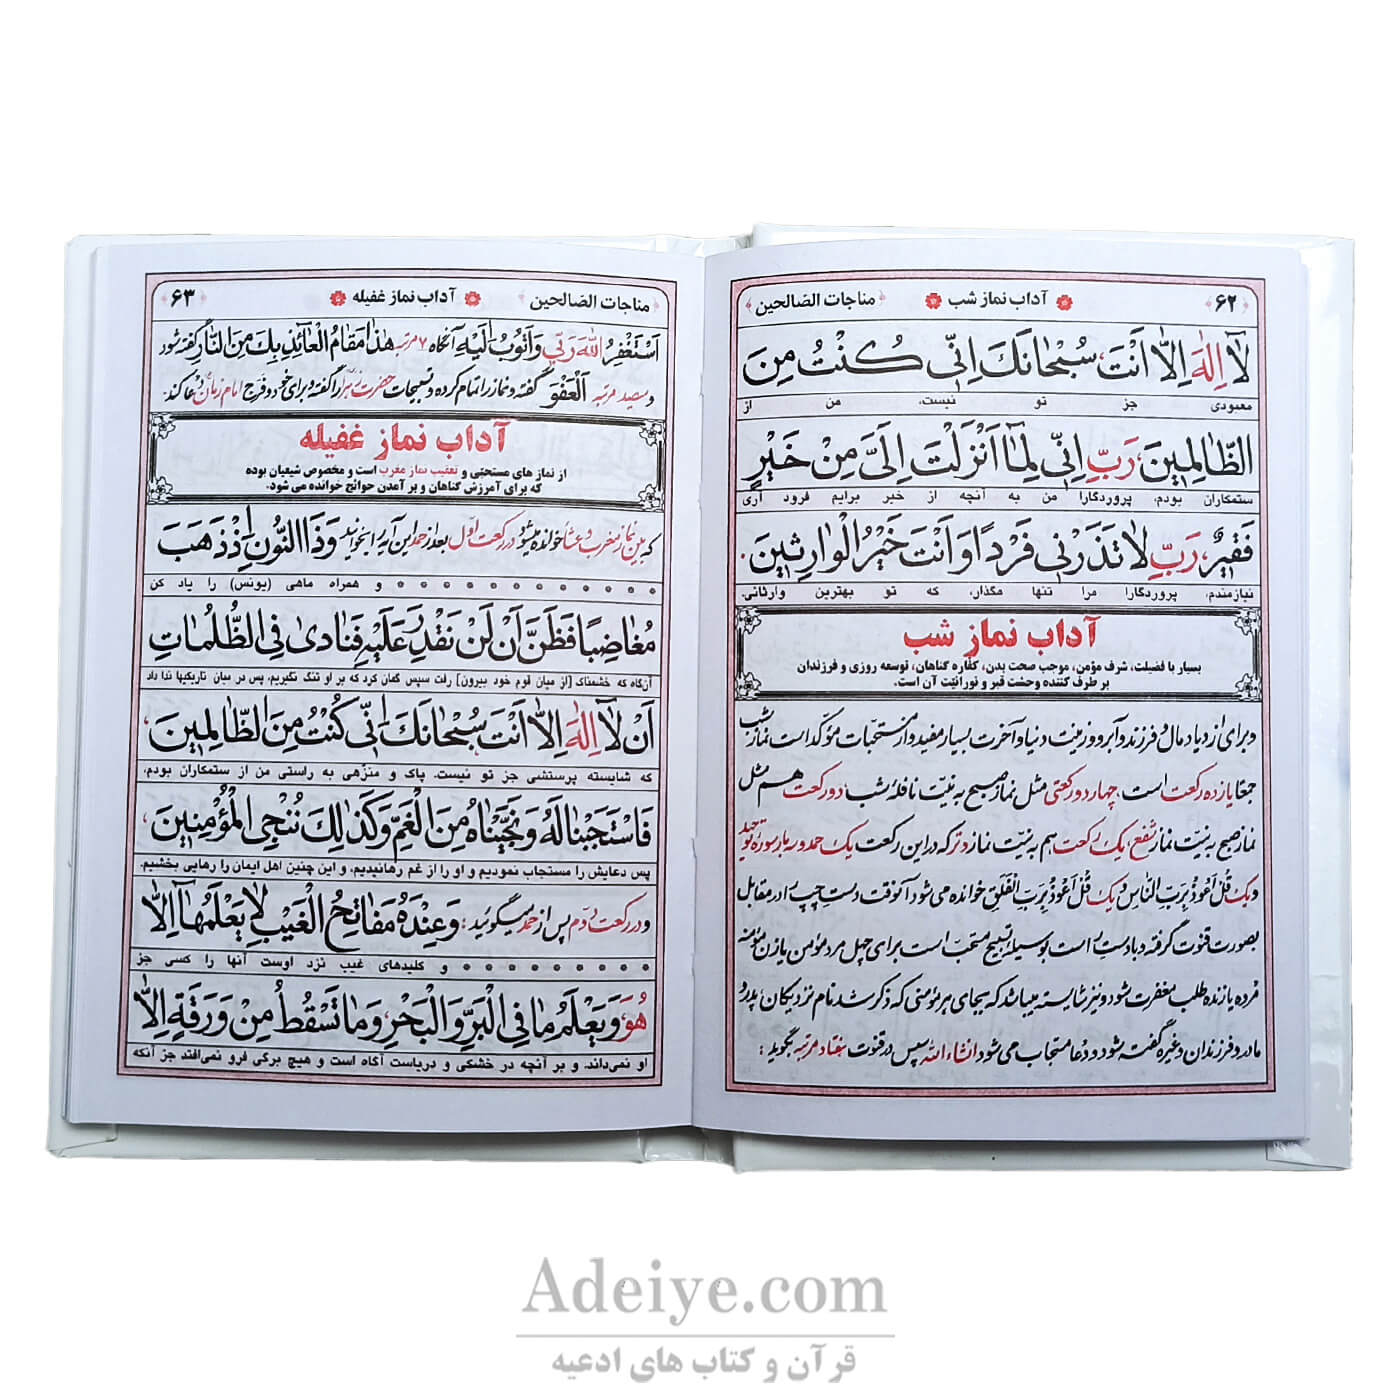 ۶۲ آداب نماز شب مناجات الصالحین
لَآ اِلٰهَ اِلَّا اَنْتَ، سُبْحَانَكَ اِنّٖی كُنْتُ مِنَ
معبودی جز تو نیست، من از
الظَّالِمٖینَ، رَبِّ اِنّٖی لِمَآ اَنْزَلْتَ اِلَیَّ مِنْ خَیْرٍ
ستمکاران بودم، پروردگارا من به آنچه از خیر برایم فرود آری
فَقٖیرٌ، رَبِّ لَا تَذَرْنٖی فَرْدًا وَ اَنْتَ خَیْرُ الْوَارِثٖینَ.
نیازمندم، پروردگارا مرا تنها مگذار، که تو بهترین وارثانی.
آداب نماز شب
بسیار با فضیلت، شرف مؤمن، موجب صحت بدن، کفاره گناهان، توسعه روزی و فرزندان
بر طرف کننده وحشت قبر و نورانیّت آن است.
و برای ازدیاد مال و فرزند و آبرو و زینت دنیا و آخرت بسیار مفید و از مستحبّات مؤکّد است نماز شب
جمعًا یازده رکعت است، چهار دو رکعتی مثل نماز صبح به نیّت نافلهٔ شب، دو رکعت هم مثل
نماز صبح به نیّت نماز شفع، یک رکعت هم به نیّت نماز وتر که در این رکعت یک حمد و سه بار سوره توحید
و یک قُلْ اَعُوذُ بِرَبِّ النَّاسِ و یک قُلْ اَعُوذُ بِرَبِّ الْفَلَقِ خوانده می شود آنوقت دست چپ را در مقابل
بصورت قنوت گرفته و با دست راست بوسیله تسبیح مستحبّ است برای چهل مرد مؤمن یا زن مؤمنه
مرده یا زنده طلب مغفرت شود و نیز شایسته میباشد که بجای هر مؤمنی که ذکر شد نام نزدیکان، پدر و
مادر و فرزندان و غیره گفته شود و دعا مستجاب می شود انشاء الله سپس در قنوت هفتاد مرتبه بگوید:
مناجات الصالحین آداب نماز غفیله ۶۳
اَسْتَغْفِرُ اللهَ رَبّٖی وَ اَتُوبُ اِلَیْهِ آنگاه ۷ مرتبه هٰذَا مَقَامُ الْعَائِذِ بِكَ مِنَ النَّارِ گفته شود
و سیصد مرتبه اَلْعَفْوَ گفته و نماز را تمام کرده و تسبیحات حضرت زهرا را گفته و برای خود و فرج امام زمان دعا کند.
آداب نماز غفیله
از نماز های مستحبّی و تعقیب نماز مغرب است و مخصوص شیعیان بوده
که برای آمرزش گناهان و بر آمدن حوائج خوانده می شود.
که بین نماز مغرب و عشاء خوانده میشود در رکعت اوّل بعد از حمد این آیه را بخوانید وَ ذَا النُّونِ اِذْ ذَهَبَ
و همراه ماهی (یونس) را یاد کن
مُغَاضِبًا فَظَنَّ اَنْ لَنْ نَقْدِرَ عَلَیْهِ فَنَادٰی فِی الظُّلُمَاتِ
آن‌گاه که خشمناک [از میان قوم خود بیرون] رفت سپس گمان کرد که بر او تنگ نگیریم، پس در میان تاریکیها ندا داد
اَنْ لَآ اِلٰهَ اِلَّا اَنْتَ سُبْحَانَكَ اِنّٖی كُنْتُ مِنَ الظَّالِمٖینَ،
که شایسته پرستشی جز تو نیست، پاک و منزّهی به راستی من از ستمکاران بودم،
فَاسْتَجَبْنَا لَهُ وَ نَجَّیْنَاهُ مِنَ الْغَمِّ وَ كَذٰلِكَ نُنْجِی الْمُؤْمِنٖینَ،
پس دعایش را مستجاب نمودیم و او را از غم رهانیدیم، و این چنین اهل ایمان را رهایی بخشیم.
و در رکعت دوّم پس از حمد میگوئید: وَ عِنْدَهُ مَفَاتِحُ الْغَیْبِ لَا یَعْلَمُهَآ اِلَّا
و کلیدهای غیب نزد اوست آنها را کسی جز
هُوَ، وَ یَعْلَمُ مَا فِی الْبَرِّ وَ الْبَحْرِ، وَ مَا تَسْقُطُ مِنْ وَرَقَةٍ اِلَّا
او نمی‌داند، و بر آنچه در خشکی و دریاست آگاه است و هیچ برگی فرو نمی‌افتد جز آنکه
Adeiye.com
قرآن و کتاب های ادعیه